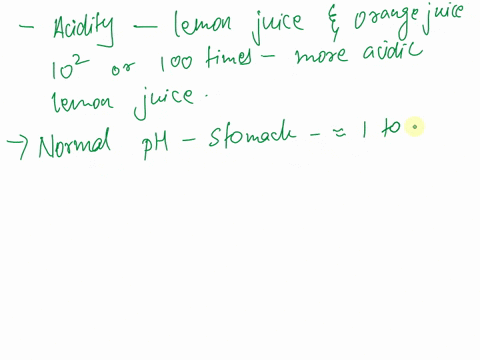 - Acidity - lemon juice & orange juice
10² or 100 times - more acidic
lemon juice.
→ Normal pH - stomach - ≈ 1 to